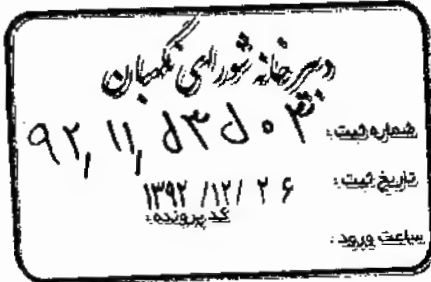 دبیرخانه شورای نگهبان
شماره ثبت: ۹۲,۱۱,۵۳۵۰۳
تاریخ ثبت: ۱۳۹۲/۱۲/۲۶
کد پرونده:
ساعت ورود: